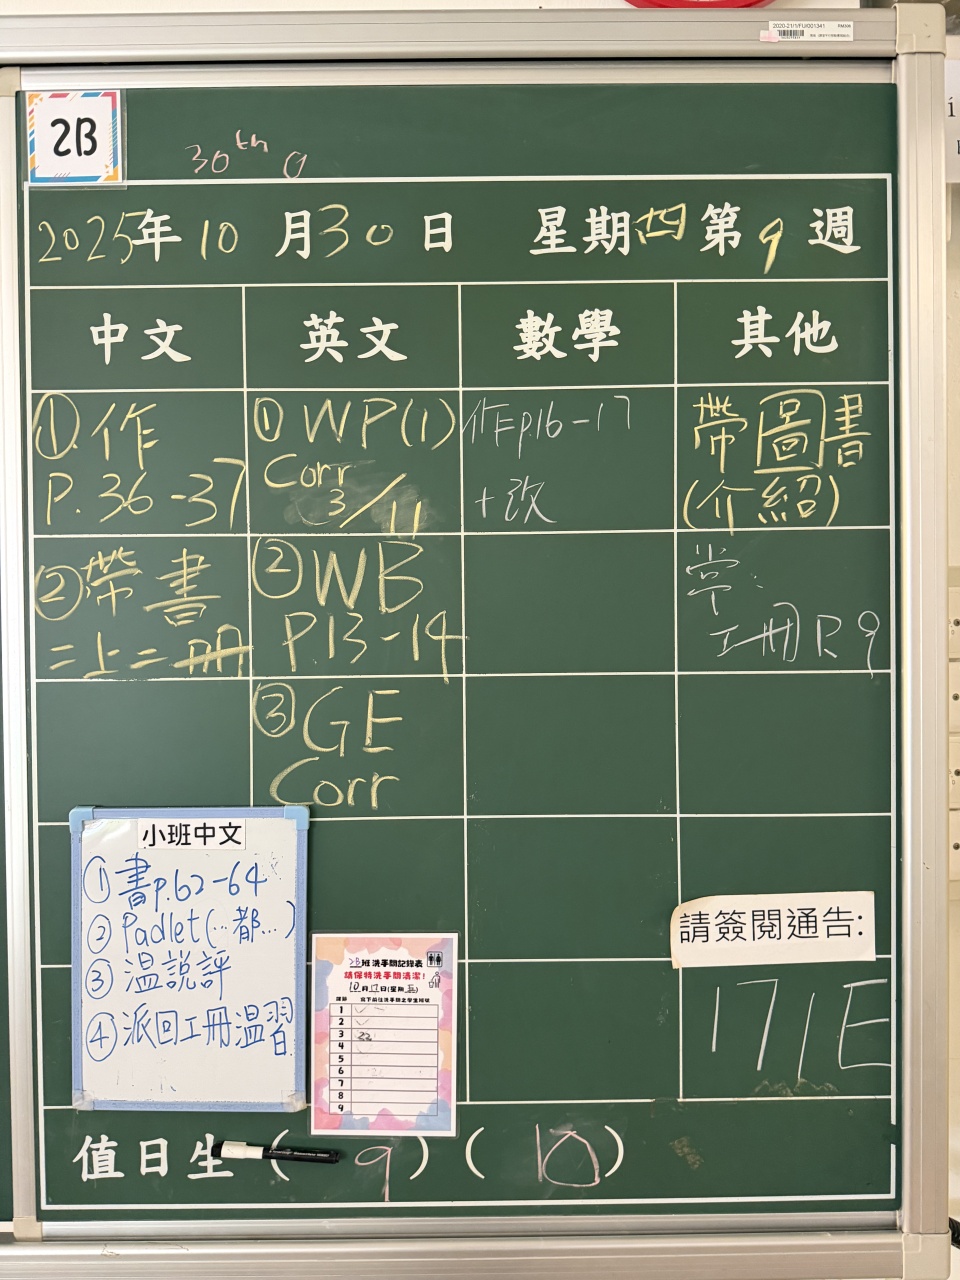 2020-21/1/FU/001341
RM208
2B
30th O
2025年10月30日 星期四第9週
中文 英文 數學 其他
①.作
P.36-37
②帶書
二上二冊
①WP(1)
Corr
3/11
②WB
P.13-14
③GE
Corr
作Fp.16-17
+改
帶圖書
(介紹)
常:
工冊P.9
小班中文
①書p.62-64
②Padlet(…都…)
③溫說評
④派回工冊溫習
2B班洗手間記錄表
請保持洗手間清潔!
10月17日(星期五)
課節
1
2
3 22
4
5
6
7
8
9
請簽閱通告:
17/E
值日生 (9)(10)